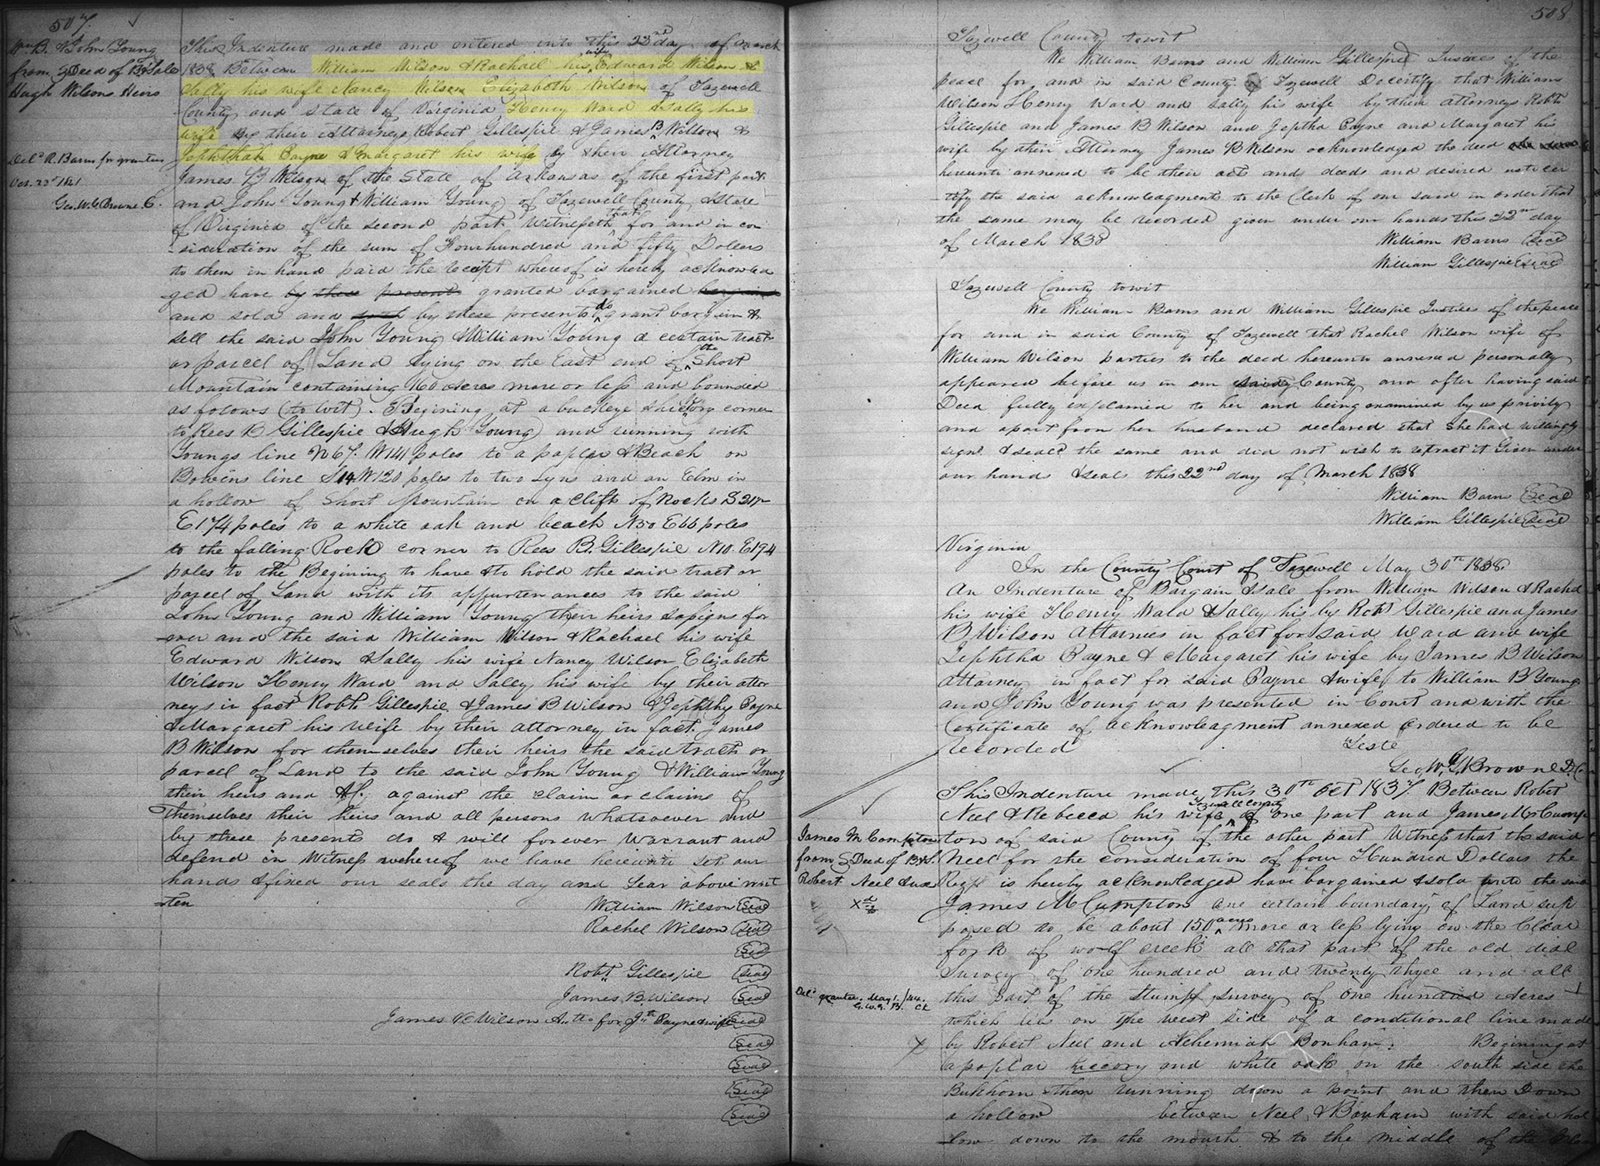 507
Wm B. & John Young
from } Deed of B & Sale
Hugh Wilsons Heirs
This Indenture made and entered into this 23rd day of March
1838 Between William Wilson & Rachael his wife Edward Wilson &
Sally his wife Nancy Wilson Elizabeth Wilson of Tazewell
County and State of Virginia Henry Ward & Sally his
wife by their Attorneys Robert Gillespie & James B Wilson &
Jephthah Payne & Margaret his wife by their Attorney
James B Wilson of the State of Arkansas of the first part
and John Young & William Young of Tazewell County & State
of Virginia of the second part Witnesseth that for and in con
-sideration of the sum of Four hundred and fifty Dollars
to them in hand paid the receipt whereof is hereby acknowled
ged have by these presents granted bargained
and sold and by these presents do grant bargain &
sell the said John Young & William Young a certain tract
or parcel of Land lying on the East end of the Short
Mountain containing 160 acres more or less and bounded
as folows (to wit). Begining at a buckeye & hickory corner
to Rees B Gillespie & Hugh Young and running with
Youngs line N 67 W 141 poles to a poplar & Beach on
Bowens line S 14 W 120 poles to two Lyns and an Elm in
a hollow of Short Mountain on a clift of Rocks S
E 174 poles to a white oak and beach N 50 E 66 poles
to the falling Rock corner to Rees B. Gillespie N 10 E 194
poles to the Begining to have & to hold the said tract or
parcel of Land with its appurtenances to the said
John Young and William Young their heirs & assigns for
ever and the said William Wilson & Rachael his wife
Edward Wilson & Sally his wife Nancy Wilson Elizabeth
Wilson Henry Ward and Sally his wife by their attor
neys in fact Robt Gillespie & James B Wilson & Jephthy Payne
& Margaret his wife by their attorney in fact James
B Wilson for themselves their heirs the said tract or
parcel of Land to the said John Young & William Young
their heirs and &c. against the claim or claims of
themselves their heirs and all persons whatsoever and
by these presents do & will forever Warrant and
defend in Witness whereof we have hereunto set our
hands & fixed our seals the day and year above writ
-ten
William Wilson Seal
Rachel Wilson Seal
Seal
Robt Gillespie Seal
James B Wilson Seal
James B Wilson Att for Jth Payne & wife Seal
Seal
Seal
Seal
Seal
Del. R. Barns for grantees
Oct. 23rd 1841
Geo. W. G. Browne C.
508
Tazewell County towit
We William Barns and William Gillespie Justices of the
peace for and in said County of Tazewell Do certify that William
Wilson Henry Ward and Sally his wife by their attorneys Robt
Gillespie and James B Wilson and Jeptha Payne and Margaret his
wife by their Attorney James B Wilson acknowledged the deed
hereunto annexed to be their act and deeds and desired us to cer
-tify the said acknowledgment to the Clerk of our said in order that
the same may be recorded given under our hands this 22nd day
of March 1838
William Barns Seal
William Gillespie Seal
Tazewell County towit
We William Barns and William Gillespie Justices of the peace
for and in said County of Tazewell that Rachel Wilson wife of
William Wilson parties to the deed hereunto annexed personally
appeared before us in our County and after having said
Deed fully explained to her and being examined by us privily
and apart from her husband declared that she had willingly
signd & seald the same and did not wish to retract it Given under
our hand & seal this 22nd day of March 1838
William Barns Seal
William Gillespie Seal
Virginia
In the County Court of Tazewell May 30th 1838
An Indenture of Bargain & Sale from William Wilson & Rachel
his wife Henry Wald & Sally his by Robt Gillespie and James
B Wilson Attornies in fact for said Ward and wife
Jephtha Payne & Margaret his wife by James B Wilson
attorney in fact for said Payne & wife to William B Young
and John Young was presented in Court and with the
Certificate of acknowlegment annexed Ordered to be
recorded
Teste
Geo W. G. Browne D.C.
This Indenture made this 30th Oct 1837 Between Robert
Neel & Rebecca his wife of Tazewell County of one part and James M Cump
ton of said County of the other part Witnesseth that the said
Neel for the consideration of four Hundred Dollars the
Rect is hereby acknowledged have bargained & sold unto the said
James M Cumpton one certain boundary of Land sup
posed to be about 150 acres more or less lying on the Clear
fork of wolf creek all that part of the old dial
Survey of one hundred and twenty three and all
this part of the Stump Survey of one hundred Acres
which lie on the west side of a conditional line made
by Robert Neel and Nehemiah Bonham: Begining at
a poplar hiccory and white oak on the south side the
Buckhorn then running down a point and then Down
a hollow between Neel & Bonham with said hol
low down to the mouth & to the middle of the
James M Compton
from } Deed of B & S.
Robert Neel & ux
Del. grantee May
G. W. G. B. Cl